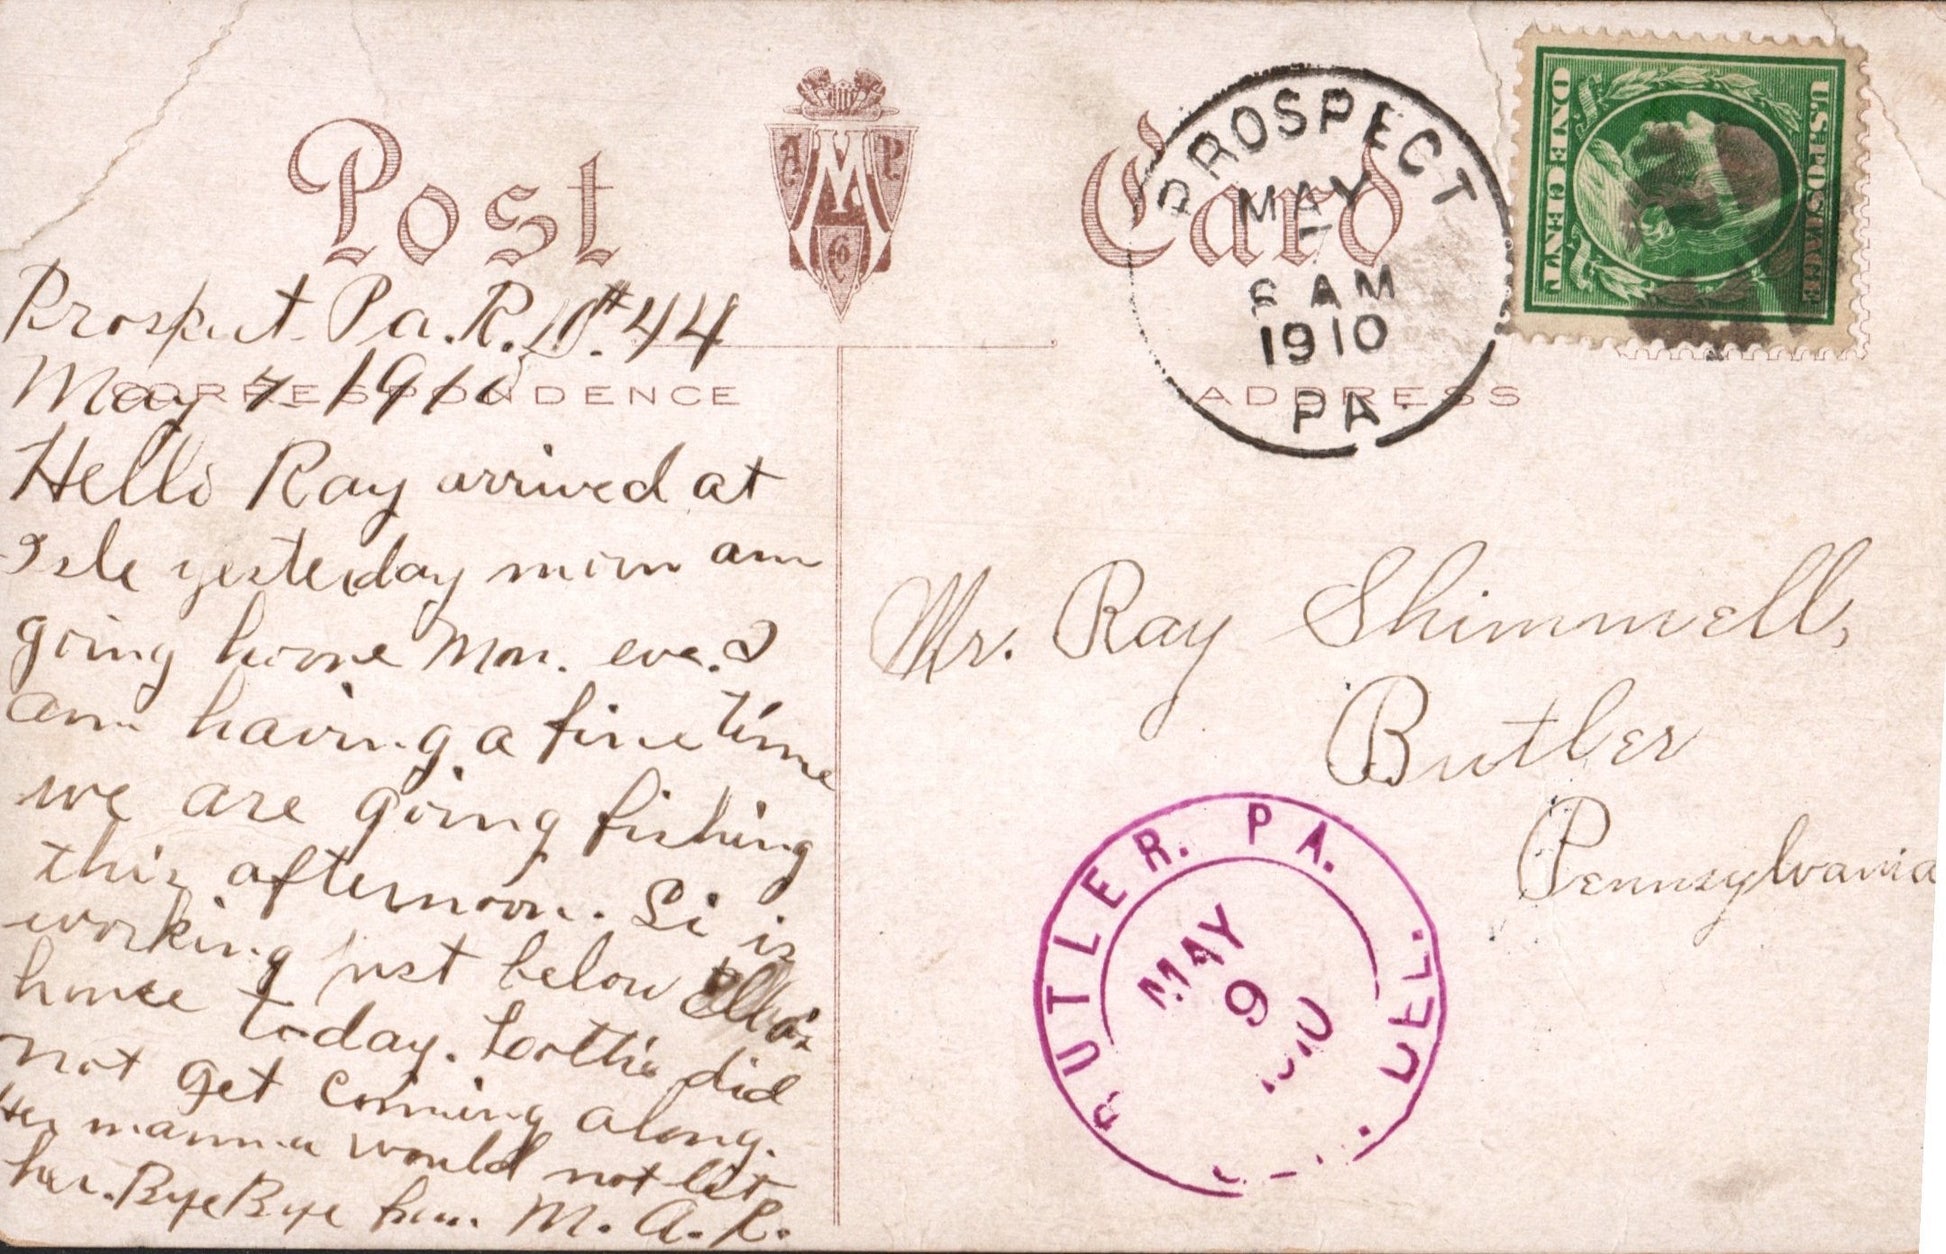 Post Card
A M P
Co
PROSPECT
MAY
7
6 AM
1910
PA.
U.S. POSTAGE
ONE CENT
CORRESPONDENCE
ADDRESS
Prospect. Pa. R. D. #44
May 7 1910
Hello Ray arrived at
Isle yesterday morn am
going home Mon. eve. I
am having a fine time
we are going fishing
this afternoon. Si is
working just below
house today. Lottie did
not get coming along.
Her mamma would not let
her. Bye Bye from M. A. R.
Mr. Ray Shimmell,
Butler
Pennsylvania
BUTLER. PA.
MAY
9
1910
DEL.